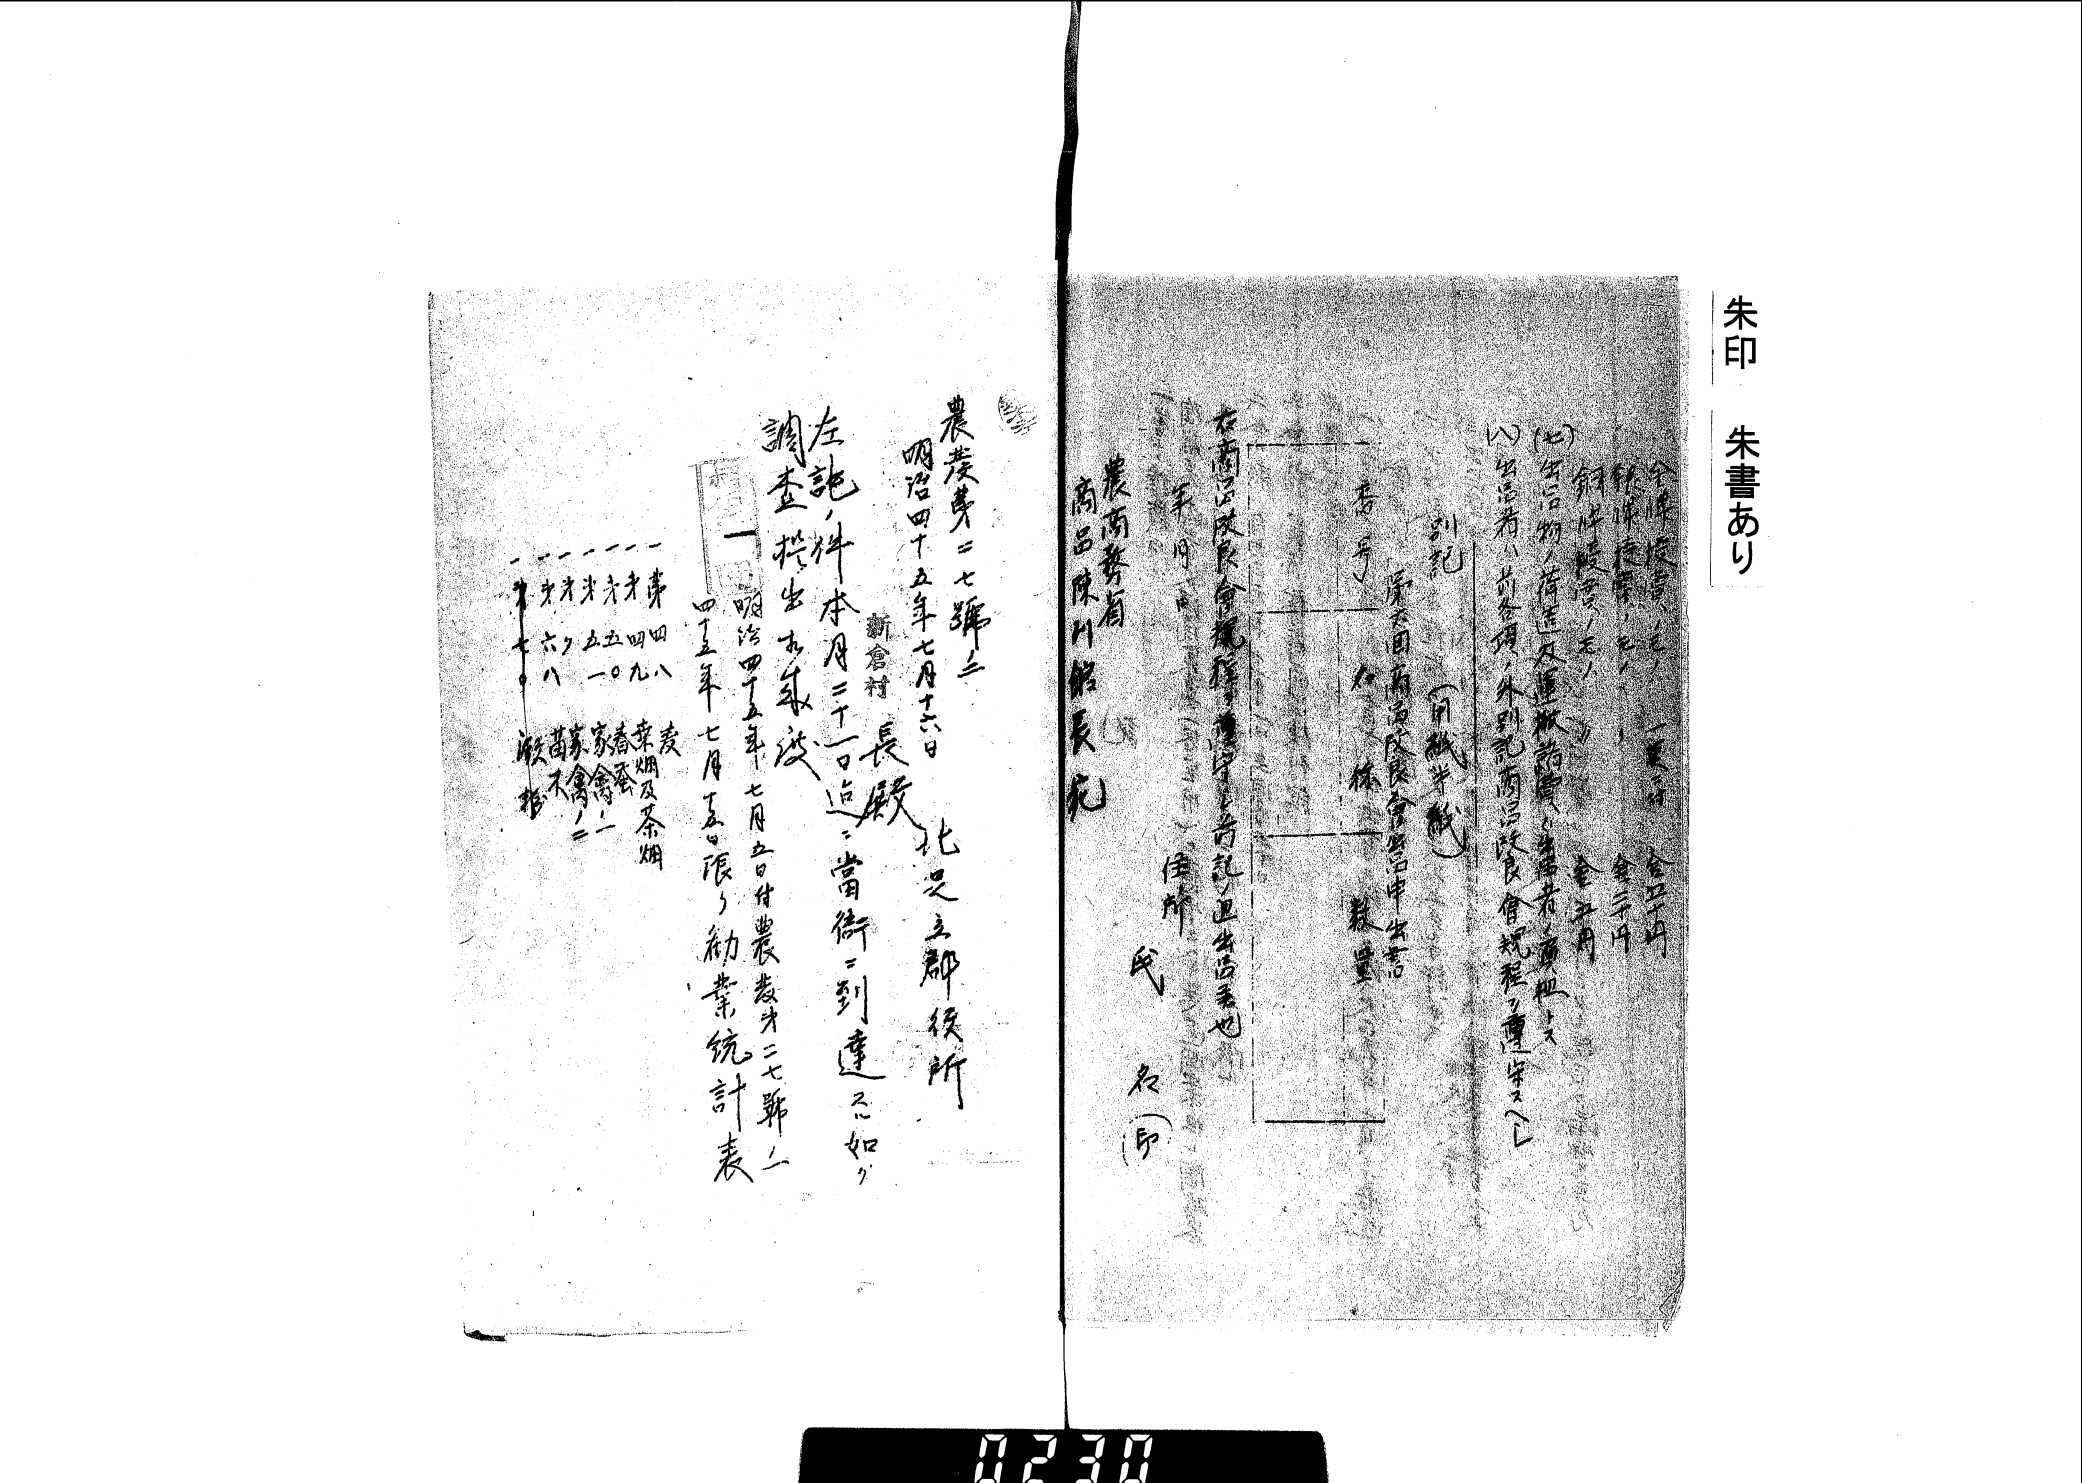 朱印 朱書あり
金牌受賞ノモノ 一点ニ付 金五十円
銀牌受賞ノモノ 〃 金三十円
銅牌受賞ノモノ 〃 金五円
(七)出品物ノ荷造及運搬諸費ハ出品者ノ負担トス
(八)出品者ハ前各項ノ外別記商品改良會規程ヲ遵守スヘシ
別記 (用紙半紙)
商品改良會出品申出書
番号 名称 数量
右商品改良會規程ヲ遵守シ前記ノ通出品候也
年 月 日
住所
氏 名 (印)
農商務省
商品陳列館長宛
農発第二七號ノ二
明治四十五年七月十六日
北足立郡役所
新倉村長殿
左記ノ件本月二十一日迠ニ當衙ニ到達スル如ク
調査提出相成度
明治四十五年七月五日付農発第二七號ノ一
四十五年七月十五日限リ勧業統計表
一 第四八 麦
一 第四九 桑畑及茶畑
一 第五〇 春蚕
一 第五一 家禽ノ一
一 第〃 家禽ノ二
一 第六八 苗木
一 第七〇
0230